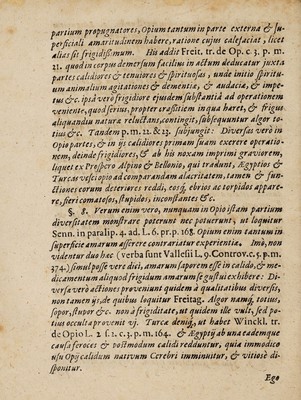 partium propugnatores, Opium tantum in parte externa & su-
perficiali amaritudinem habere, ratione cujus calefaciat, licet
alias sit frigidissimum. His addit Freit. tr. de Op. c. 3. p. m.
21. quod in corpus demersum facilius in actum deducatur juxta
partes calidiores & tenuiores & spirituosas, unde initio spirituum
animalium agitationes & dementia, & audacia, & impe-
tus &c. ipsâ verò frigidiore ejusdem substantiâ ad operationem
veniente, quod serius, propter crassitiem in qua haret, & frigus
aliquandiu natura reluctans, contingit, subsequuntur algor to-
tius &c. Tandem p. m. 22. & 23. subjungit: Diversas verò in
Opio partes, & in ijs calidiores primùm suam exerere operatio-
nem, deinde frigidiores, & ab his noxam imprimi graviorem,
liquet ex Prospero Alpino & Bellonio, qui tradunt, Ægyptios &
Turcas vesci opio ad comparandam alacritatem, tamen & fun-
ctiones eorum deteriores reddi, eosq́; ebrios ac torpidos appare-
re, fieri comatosos, stupidos, inconstantes &c.
§. 8. Verum enim vero, nunquam in Opio istam partium
diversitatem monstrare poterunt nec potuerunt, ut loquitur
Senn. in paralip. 4. ad. L. 6. pr. p. 168. Opium enim tantum in
superficie amarum asserere contrariatur experientiæ. Imò, non
videntur duo hæc (verba sunt Vallesii L. 9. Controv. c. 5. p. m.
374.) simul posse vere dici, amarum saporem esse in calido, & me-
dicamentum aliquod frigidum amarum se gustu exhibere: Di-
versa verò actiones proveniunt quidem à qualitatibus diversis,
non tamen ijs, de quibus loquitur Freitag. Algor namq́; totius,
sopor, stupor &c. non à frigiditate, ut quidem ille vult, sed po-
tius occulta provenit vj. Turca deniq́;, ut habet Winckl. tr.
de Opio L. 2. s. 1. c. 3. p. m. 164. & Ægyptij ab una eademque
causa feroces & postmodum calidi redduntur, quia immodico
usu Opij calidum nativum Cerebri imminuitur, & vitiosè di-
sponitur.
Ego